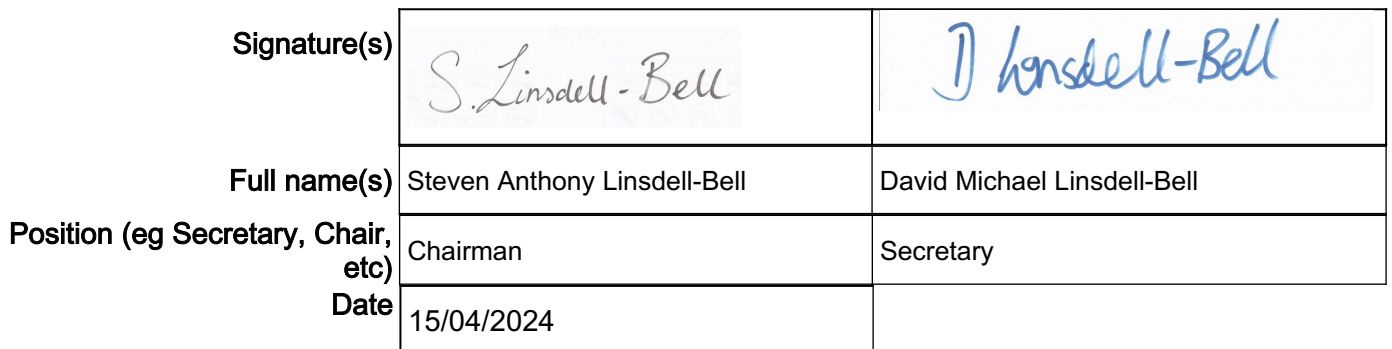 Signature(s)
S. Linsdell-Bell
D Linsdell-Bell
Full name(s)
Steven Anthony Linsdell-Bell
David Michael Linsdell-Bell
Position (eg Secretary, Chair,
etc)
Chairman
Secretary
Date
15/04/2024